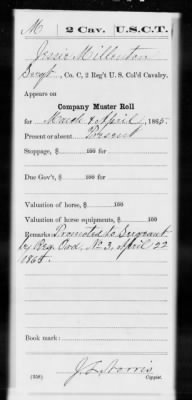 M 2 Cav. U.S.C.T.
Jessie Millenton
Sergt., Co. C, 2 Reg't U. S. Col'd Cavalry.
Appears on
Company Muster Roll
for March & April, 1865.
Present or absent Present
Stoppage, $ 100 for
Due Gov't, $ 100 for
Valuation of horse, $ 100
Valuation of horse equipments, $ 100
Remarks: Promoted to Sergeant
by Reg. Ord. No 3, April 22
1865.
Book mark:
(358) Copyist.